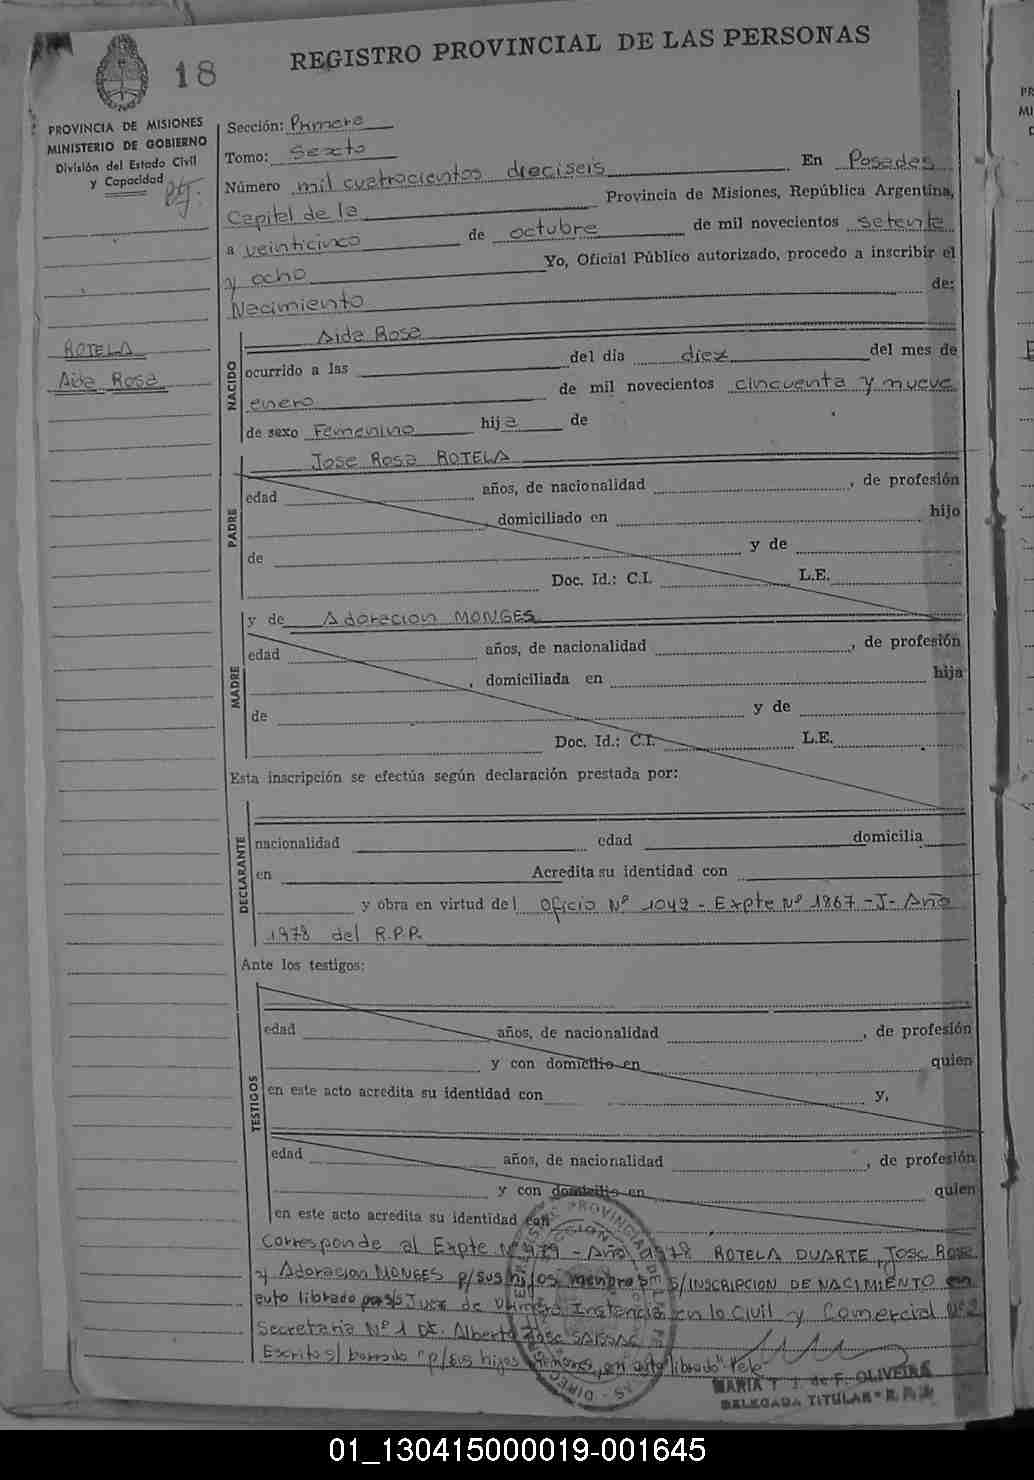 18
REGISTRO PROVINCIAL DE LAS PERSONAS
PROVINCIA DE MISIONES
MINISTERIO DE GOBIERNO
División del Estado Civil
y Capacidad
ROTELA
Aida Rosa
Sección: Primera
Tomo: Sexto
Número mil cuatrocientos dieciseis En Posadas
Capital de la Provincia de Misiones, República Argentina,
a veinticinco de octubre de mil novecientos setenta
y ocho Yo, Oficial Público autorizado, procedo a inscribir el
Nacimiento de:
NACIDO
Aida Rosa
ocurrido a las del dia diez del mes de
enero de mil novecientos cincuenta y nueve
de sexo Femenino hija de
PADRE
Jose Rosa ROTELA
edad años, de nacionalidad , de profesión
, domiciliado en hijo
de y de
Doc. Id.: C.I. L.E.
MADRE
y de Adoracion MONGES
edad años, de nacionalidad , de profesión
, domiciliada en hija
de y de
Doc. Id.: C.I. L.E.
Esta inscripción se efectúa según declaración prestada por:
DECLARANTE
nacionalidad edad domicilia
en Acredita su identidad con
y obra en virtud del Oficio Nº 1049 - Expte Nº 1867 - J - Año
1978 del R.P.P.
Ante los testigos:
TESTIGOS
edad años, de nacionalidad , de profesión
y con domicilio en quien
en este acto acredita su identidad con y,
edad años, de nacionalidad , de profesión
y con domicilio en quien
en este acto acredita su identidad con
Corresponde al Expte Nº 979 - Año 1978 ROTELA DUARTE, Jose Rosa
y Adoracion MONGES p/sus hijos menores S/INSCRIPCION DE NACIMIENTO en
auto librado por s/s Juez de Primera Instancia en lo Civil y Comercial Nº 2
Secretaria Nº 1 Dr. Alberto Jose
Escrito s/ borrado "p/sus hijos menores, en auto librado" Vale
MARIA T. J. de F. OLIVEIRA
DELEGADA TITULAR
01_130415000019-001645